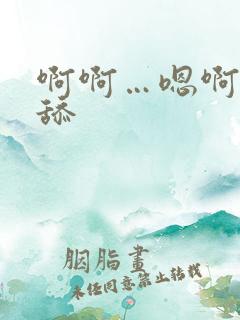 啊啊…嗯啊
舔
胭脂畫
未经同意禁止转载